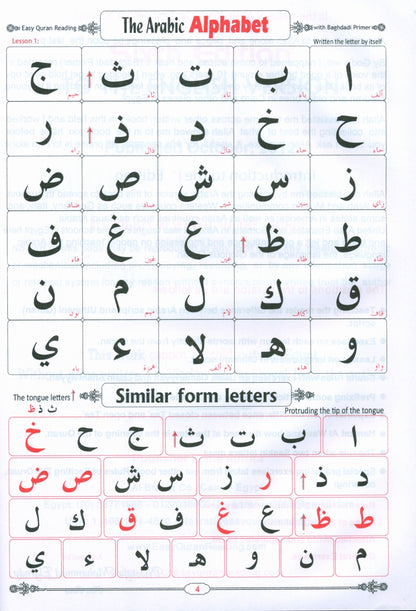 Easy Quran Reading The Arabic Alphabet with Baghdadi Primer
Lesson 1: Written the letter by itself
ا ب ت ث ج
ألف باء تاء ثاء جيم
ح خ د ذ ر
حاء خاء دال ذال راء
ز س ش ص ض
زاي سين شين صاد ضاد
ط ظ ع غ ف
طاء ظاء عين غين فاء
ق ك ل م ن
قاف كاف لام ميم نون
و هـ لا ء ي
واو هاء لام ألف همزة ياء
Similar form letters
The tongue letters ↑ Protruding the tip of the tongue
ث ذ ظ
ا ب ت ث ج ح خ
د ذ ر ز س ش ص ض
ط ظ ع غ ف ق ك ل
م ن و هـ لا ء ي
4